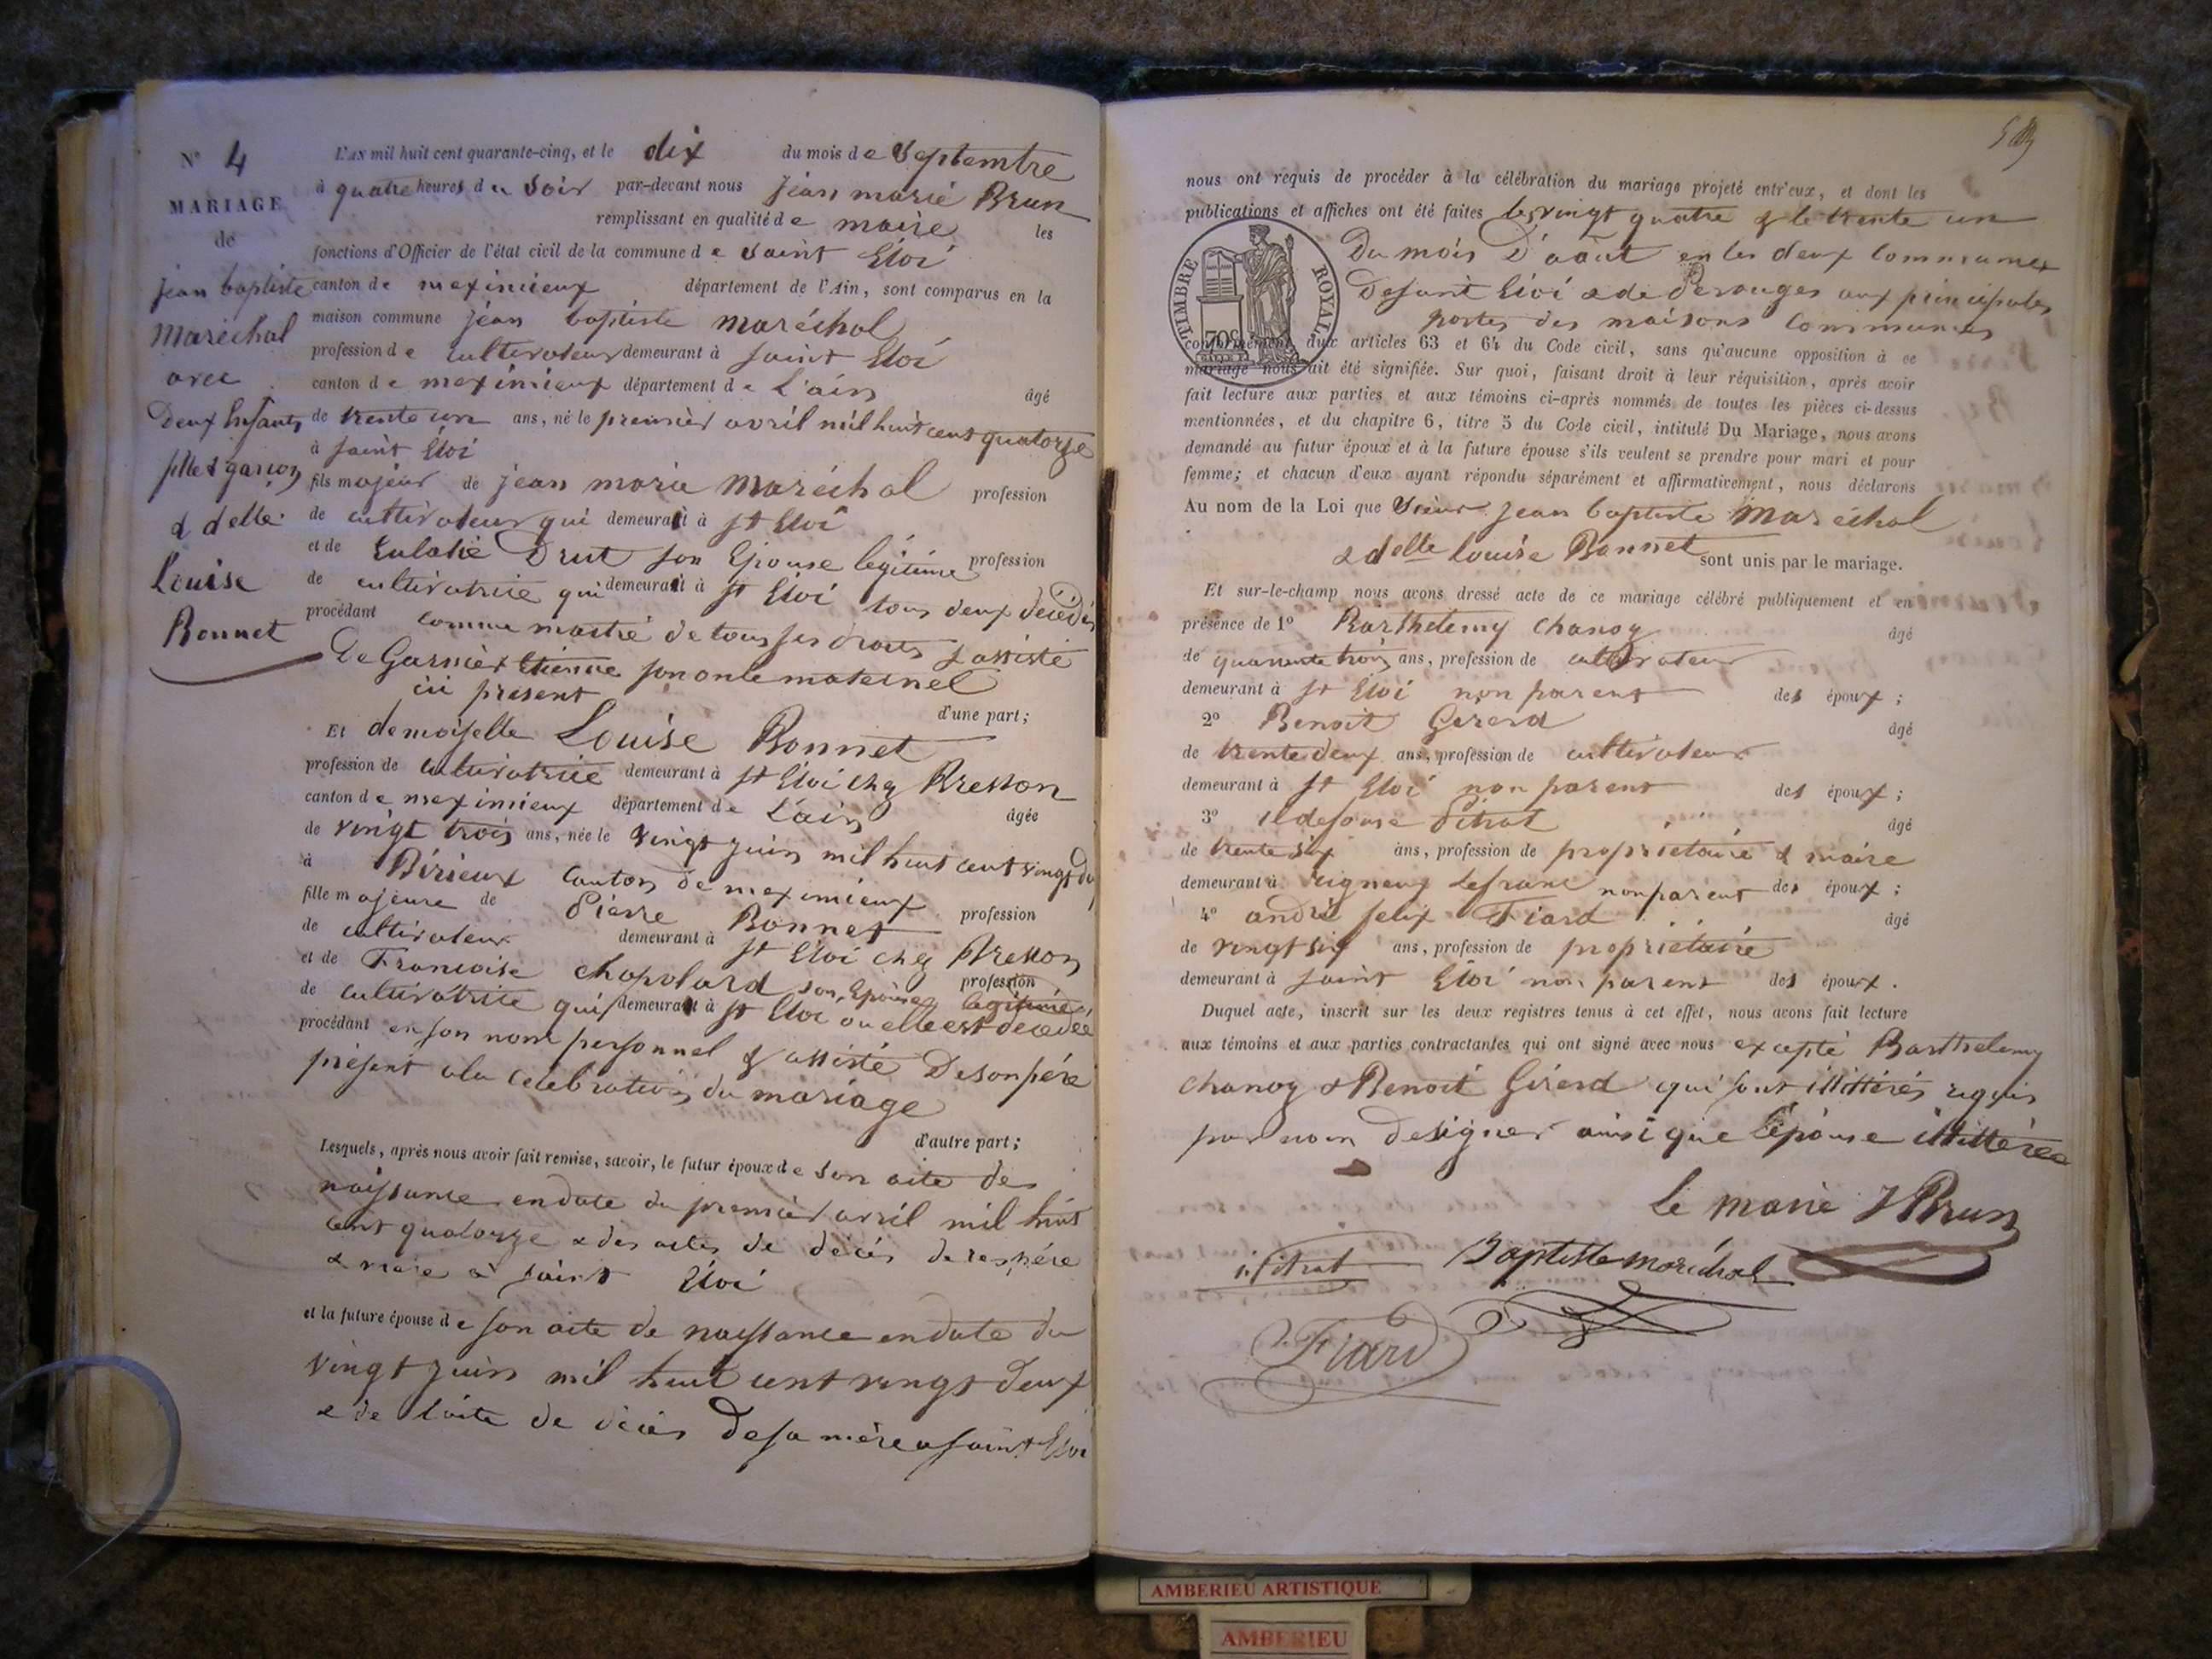 N° 4
MARIAGE
de
jean baptiste
Maréchal
avec
Deux Enfants
fille & garçon
& delle
Louise
Bonnet
L'AN mil huit cent quarante-cinq, et le dix du mois de Septembre
à quatre heures du Soir par-devant nous Jean marie Brun
remplissant en qualité de maire les
fonctions d'Officier de l'état civil de la commune de Saint Eloi
canton de meximieux département de l'Ain, sont comparus en la
maison commune jean baptiste maréchal
profession de cultivateur demeurant à saint Eloi
canton de meximieux département de L'ain âgé
de trente un ans, né le premier avril mil huit cent quatorze
à saint Eloi
fils majeur de jean marie Maréchal profession
de cultivateur qui demeurait à st Eloi
et de Eulalie Drut son Epouse légitime profession
de cultivatrice qui demeurait à st Eloi tous deux décédés
procédant comme maitre de tous ses droits & assisté
De Garnier Etienne son oncle maternel
ici present
d'une part;
Et demoiselle Louise Bonnet
profession de cultivatrice demeurant à st Eloi chez Bresson
canton de meximieux département de L'ain âgée
de vingt trois ans, née le vingt juin mil huit cent vingt du
à Birieux Canton de meximieux
fille majeure de Pierre Bonnet profession
de cultivateur demeurant à st Eloi chez Bresson
et de Francoise chapolard son Epouse légitime profession
de cultivatrice qui demeurait à st Eloi ou elle est décedée
procédant en son nom personnel & assisté De son père
présent a la celebration du mariage
d'autre part;
Lesquels, après nous avoir fait remise, savoir, le futur époux de son acte de
naissance en date du premier avril mil huit
cent quatorze & des actes de décés de ses père
& mère à saint Eloi
et la future épouse de son acte de naissance en date du
vingt juin mil huit cent vingt deux
& de l'acte de décés De sa mère a saint Eloi
nous ont requis de procéder à la célébration du mariage projeté entr'eux, et dont les
publications et affiches ont été faites les vingt quatre & le trente un
Du mois D'aout en les deux Communes
De saint Eloi & de Perouges aux principales
portes des maisons Communes
TIMBRE ROYAL
70c
conformément aux articles 63 et 64 du Code civil, sans qu'aucune opposition à ce
mariage nous ait été signifiée. Sur quoi, faisant droit à leur réquisition, après avoir
fait lecture aux parties et aux témoins ci-après nommés de toutes les pièces ci-dessus
mentionnées, et du chapitre 6, titre 5 du Code civil, intitulé Du Mariage, nous avons
demandé au futur époux et à la future épouse s'ils veulent se prendre pour mari et pour
femme; et chacun d'eux ayant répondu séparément et affirmativement, nous déclarons
Au nom de la Loi que Sieur Jean baptiste Maréchal
& delle Louise Bonnet sont unis par le mariage.
Et sur-le-champ nous avons dressé acte de ce mariage célébré publiquement et en
présence de 1° Barthelemy Chanoz âgé
de quarente trois ans, profession de cultivateur
demeurant à st Eloi non parent des époux;
2° Benoit Girerd âgé
de trente deux ans, profession de cultivateur
demeurant à st Eloi non parent des époux;
3° ildefonse Pitrat âgé
de trente six ans, profession de propriétaire & maire
demeurant à rigneux Lefranc non parent des époux;
4° andré felix Fiard âgé
de vingt six ans, profession de propriétaire
demeurant à saint Eloi non parent des époux.
Duquel acte, inscrit sur les deux registres tenus à cet effet, nous avons fait lecture
aux témoins et aux parties contractantes qui ont signé avec nous excepté Barthelemy
Chanoz & Benoit Girerd qui sont illittérés requis
par nous De signer ainsi que l'épouse illittérée
Le maire J Brun
i. Pitrat Baptiste maréchal
Fiard
AMBERIEU ARTISTIQUE
AMBERIEU